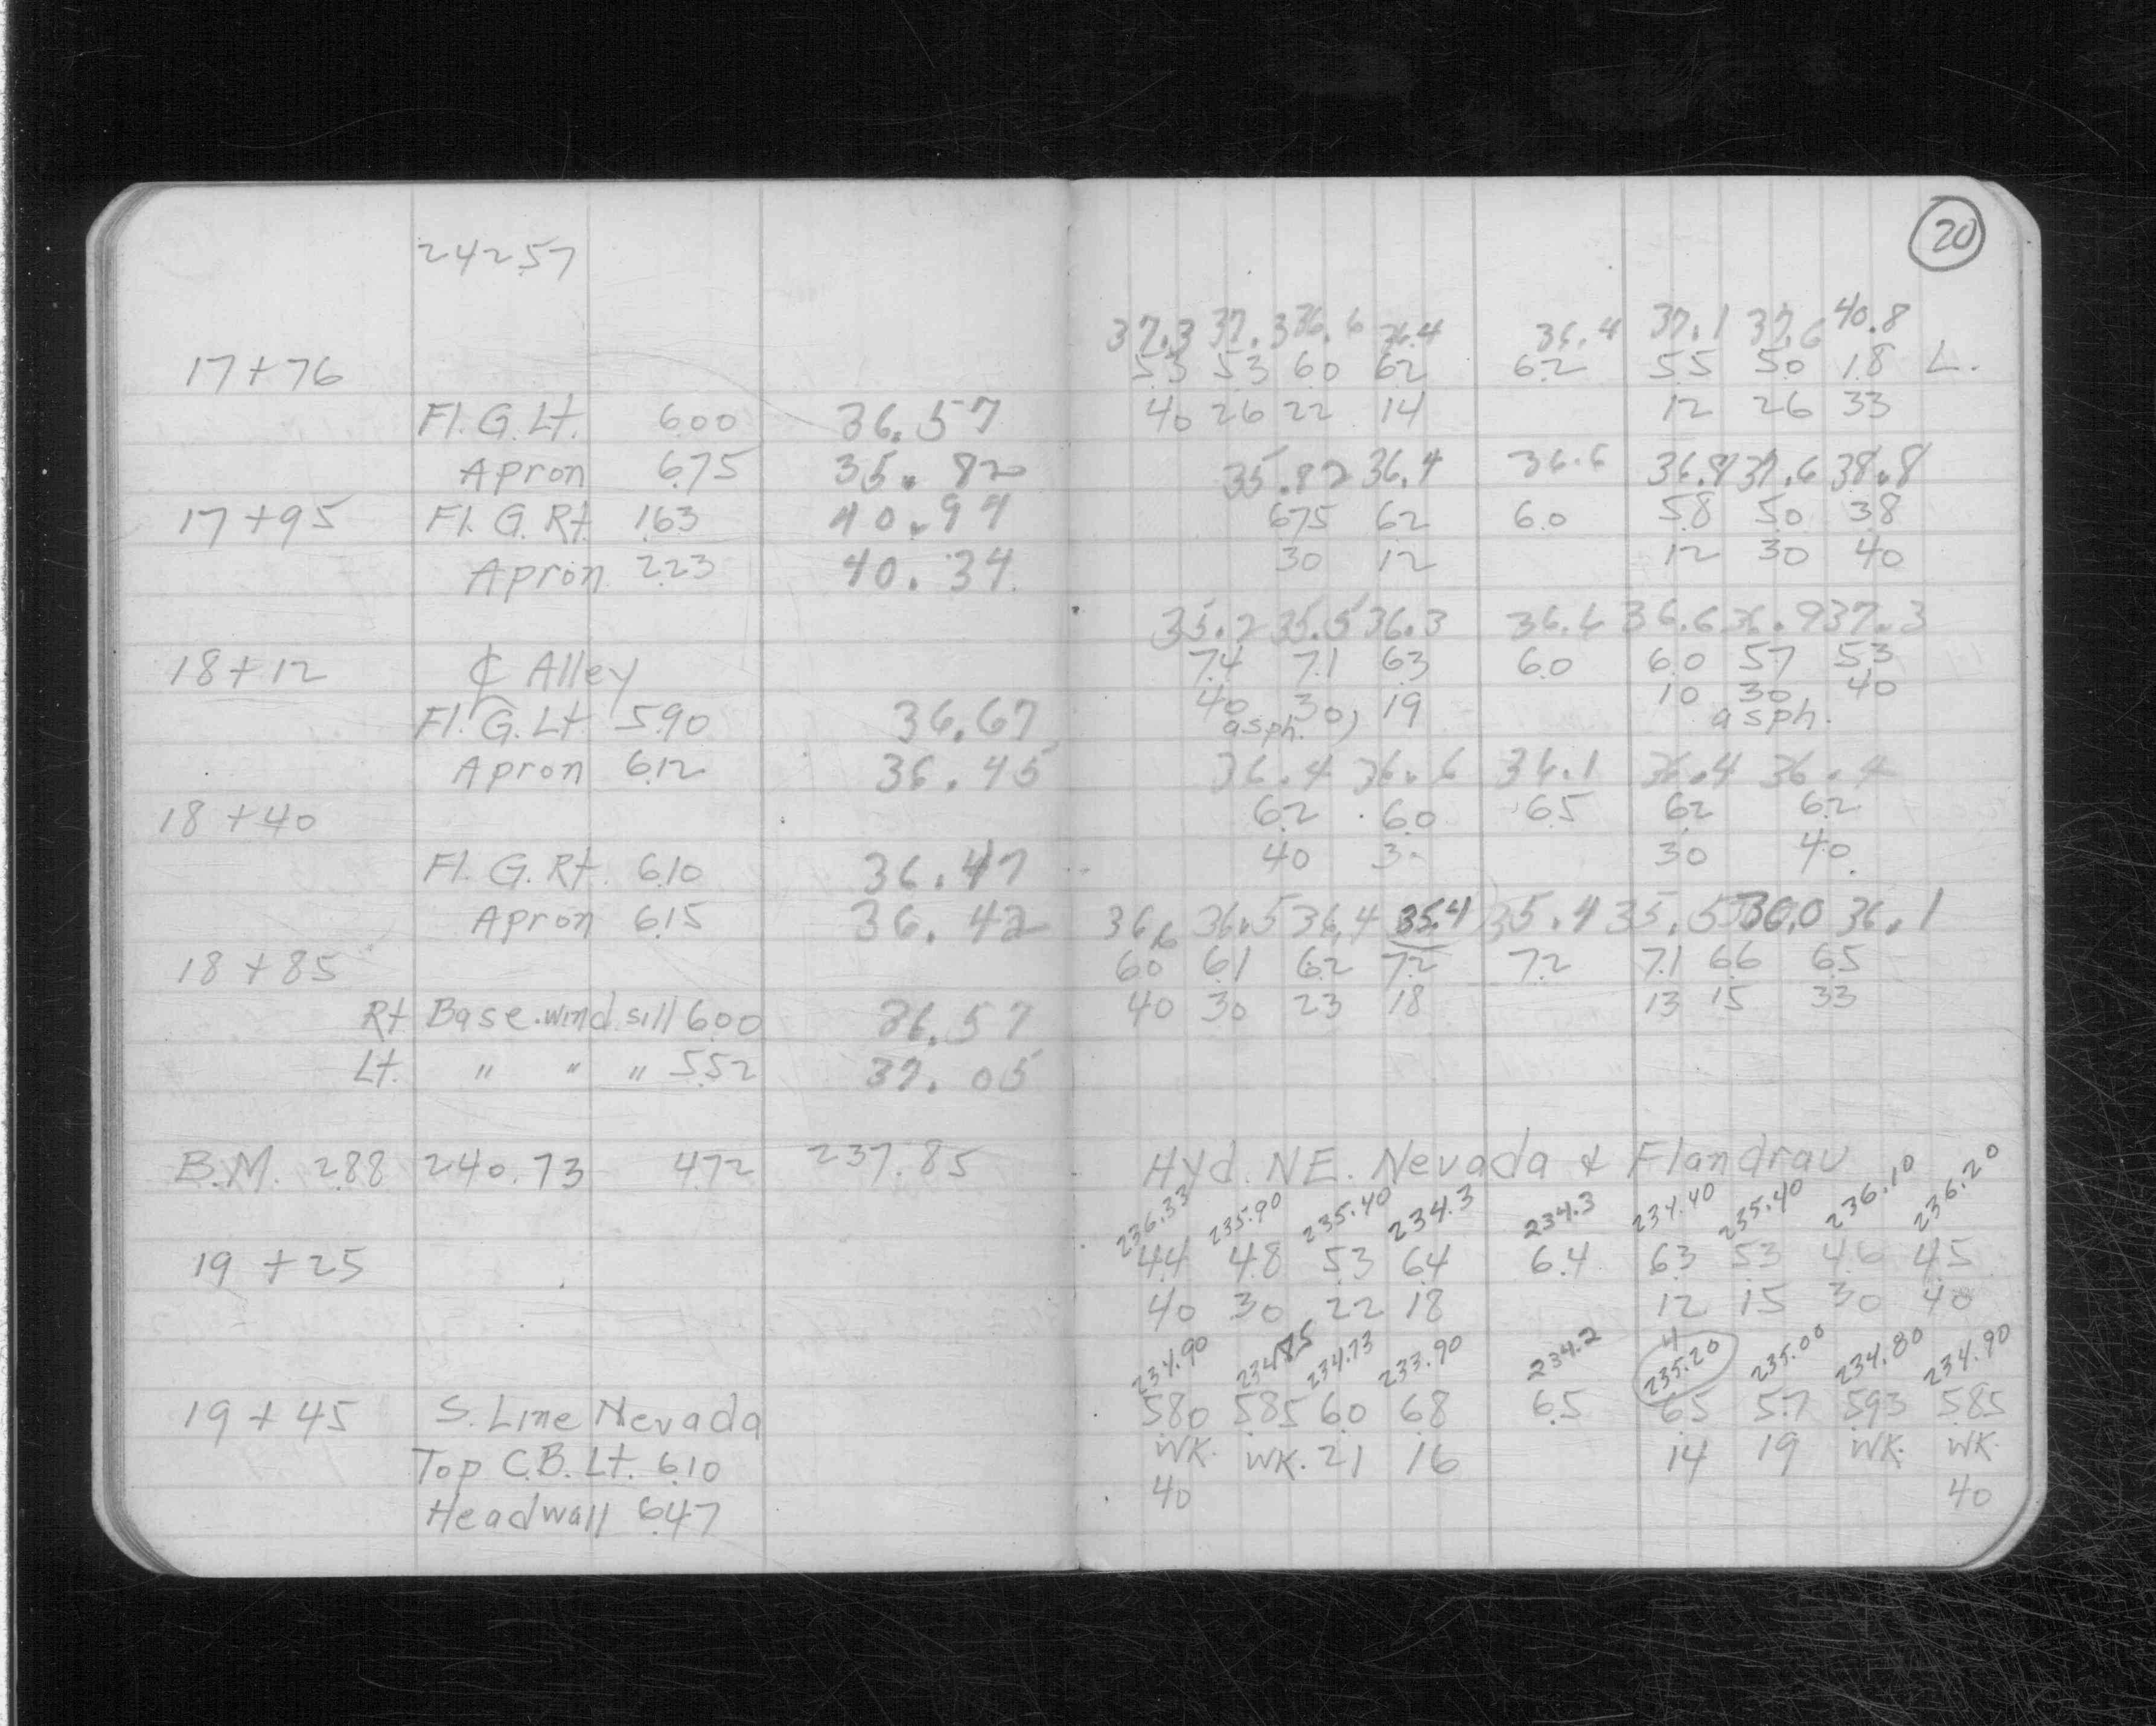 20
24257
37.3 37.3 36.6 36.4 36.4 37.1 37.6 40.8
17+76 5.3 5.3 6.0 6.2 6.2 5.5 5.0 1.8 L.
Fl. G. Lt. 6.00 36.57 40 26 22 14 12 26 33
Apron 6.75 35.82 35.82 36.4 36.6 36.8 37.6 38.8
17+95 Fl. G. Rt. 1.63 40.94 6.75 6.2 6.0 5.8 5.0 3.8
Apron 2.23 40.34 30 12 12 30 40
35.2 35.5 36.3 36.6 36.6 36.9 37.3
18+12 ℄ Alley 7.4 7.1 6.3 6.0 6.0 5.7 5.3
40 30 19 10 30 40
Fl. G. Lt. 5.90 36.67 asph. asph.
Apron 6.12 36.45 36.4 36.6 36.1 36.4 36.4
18+40 6.2 6.0 6.5 6.2 6.2
Fl. G. Rt. 6.10 36.47 40 30 30 40
Apron 6.15 36.42 36.6 36.5 36.4 35.4 35.4 35.5 36.0 36.1
18+85 6.0 6.1 6.2 7.2 7.2 7.1 6.6 6.5
Rt Base wind sill 6.00 36.57 40 30 23 18 13 15 33
Lt. " " " 5.52 37.05
B.M. 2.88 240.73 4.72 237.85 Hyd. N.E. Nevada & Flandrau
236.33 235.90 235.40 234.3 234.3 234.40 235.40 236.10 236.20
19+25 4.4 4.8 5.3 6.4 6.4 6.3 5.3 4.6 4.5
40 30 22 18 12 15 30 40
4
234.90 234.85 234.73 233.90 234.2 235.20 235.00 234.80 234.90
19+45 S. Line Nevada 5.80 5.85 6.0 6.8 6.5 6.5 5.7 5.93 5.85
Top C.B. Lt. 6.10 WK. WK. 21 16 14 19 WK. WK.
Headwall 6.47 40 40